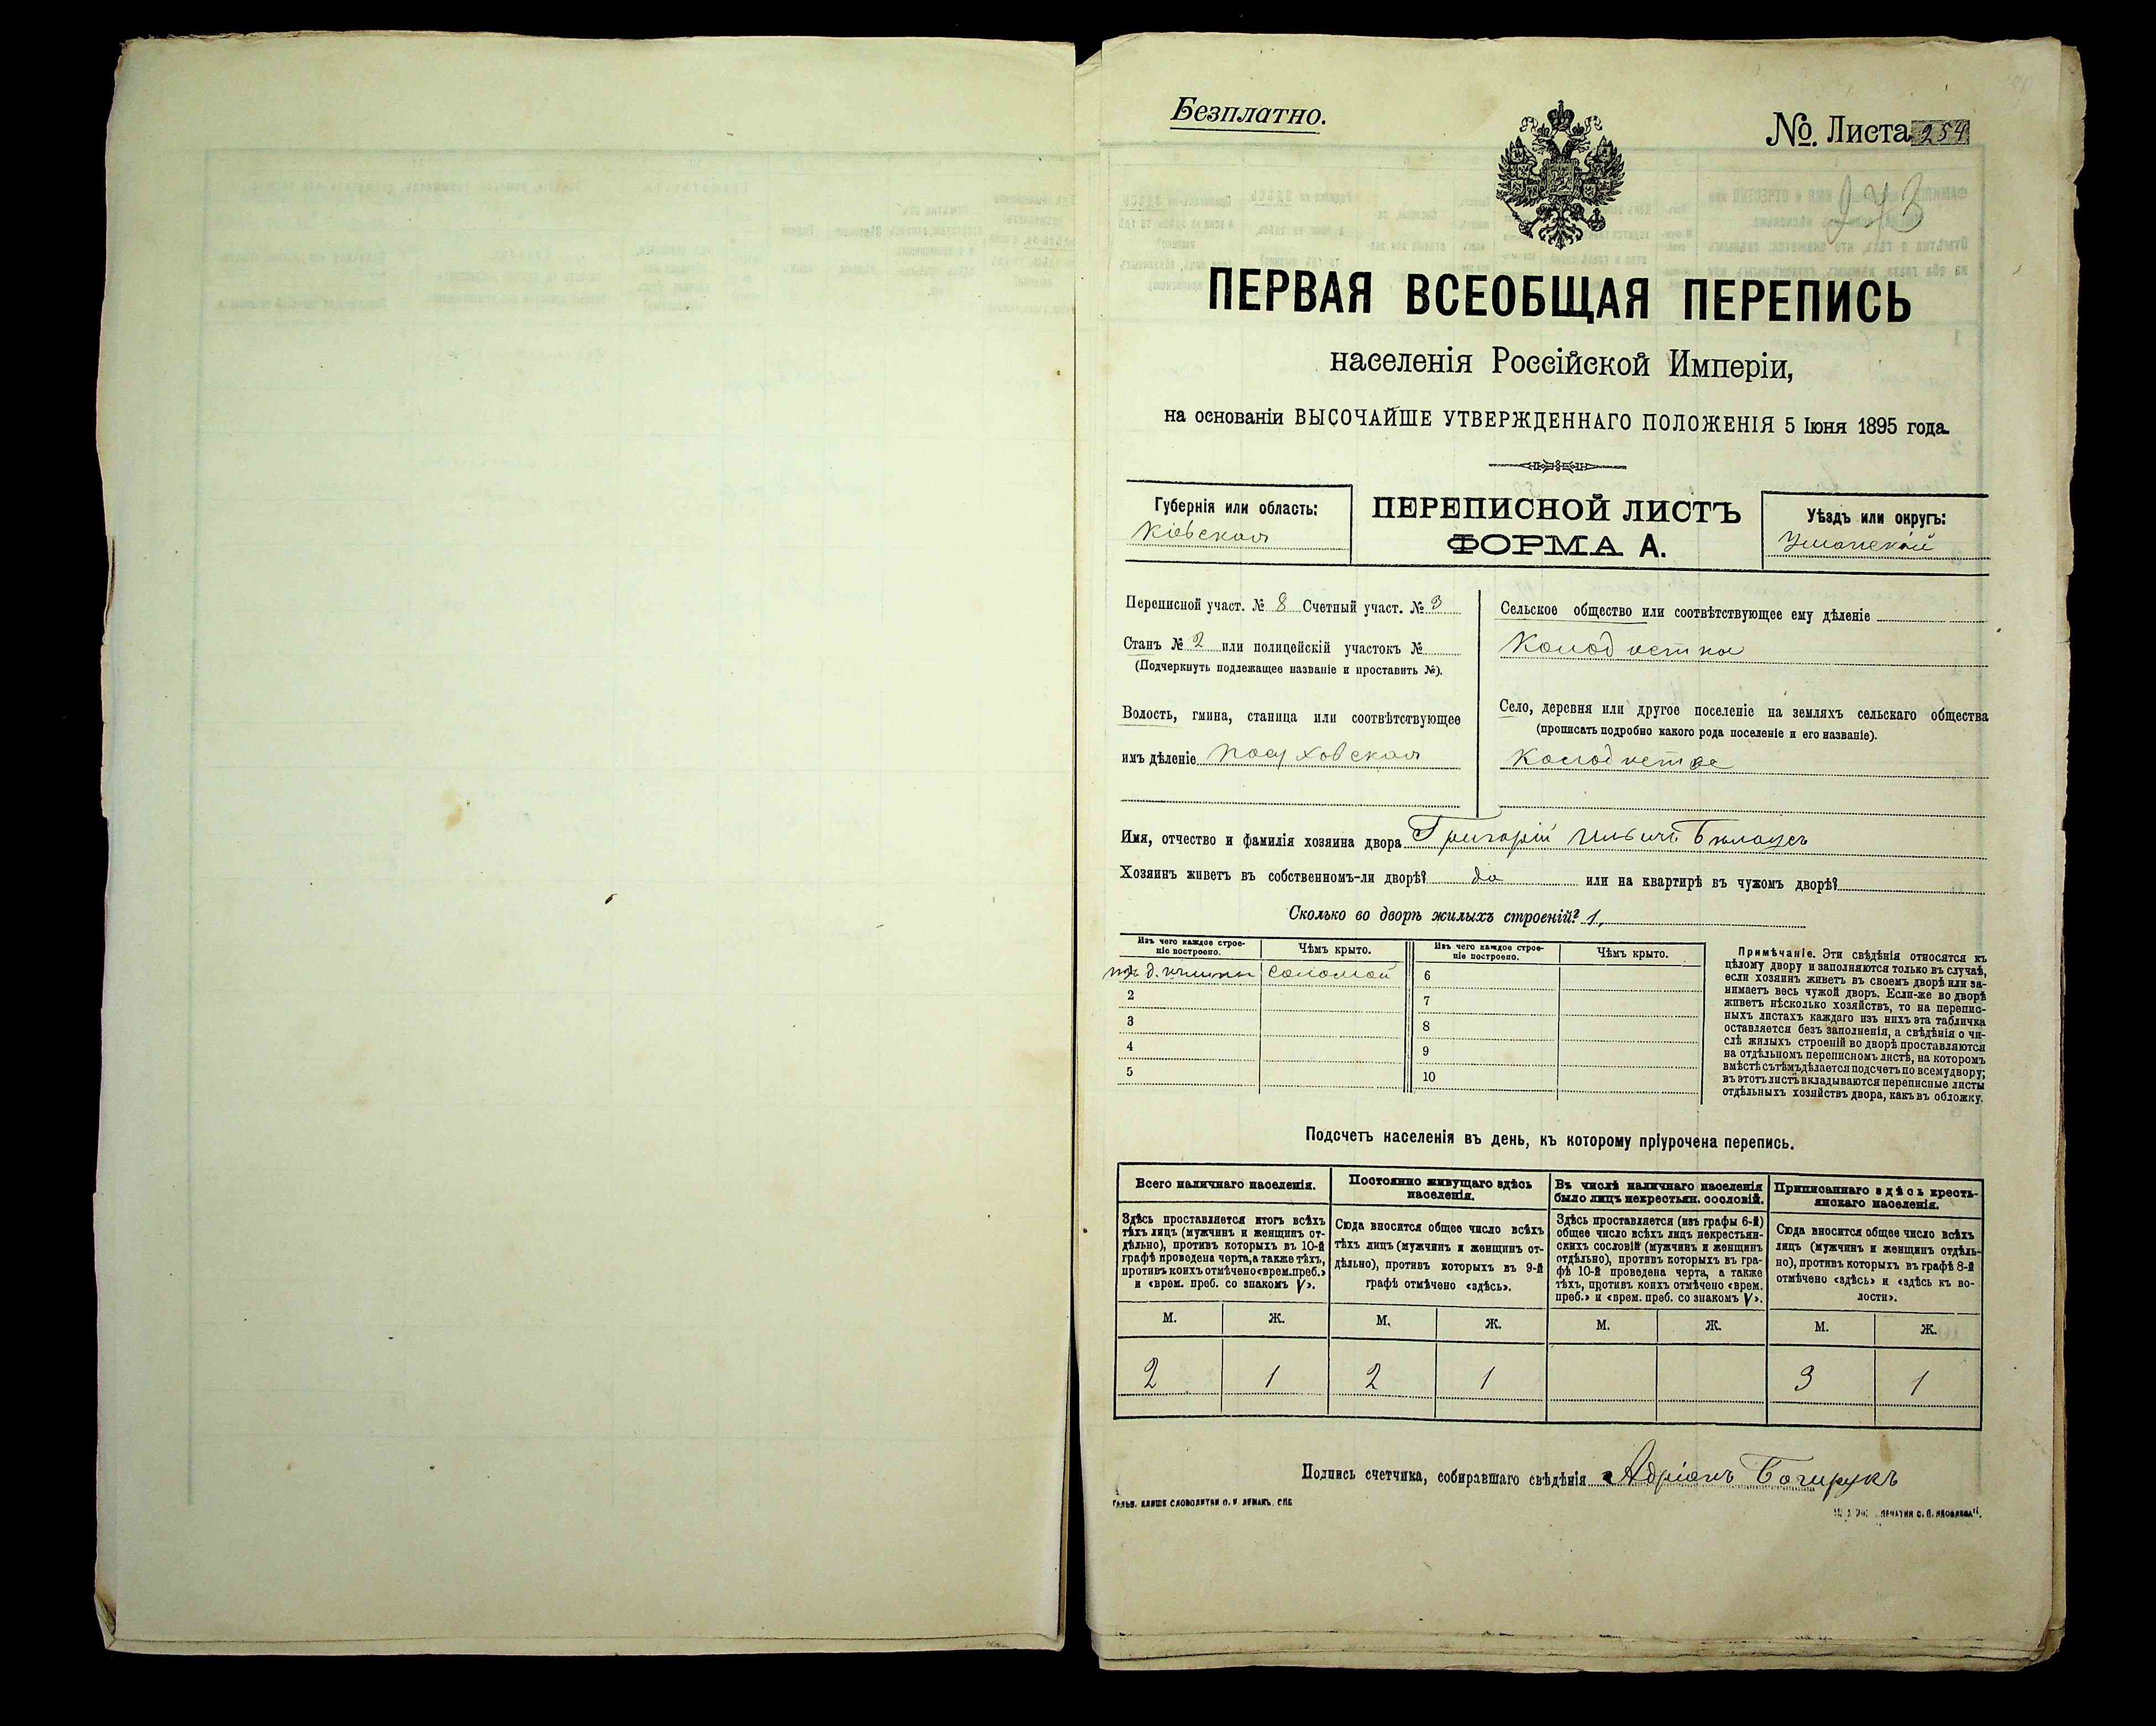 Безплатно.
№. Листа 254
ПЕРВАЯ ВСЕОБЩАЯ ПЕРЕПИСЬ
населенія Россійской Имперіи,
на основаніи ВЫСОЧАЙШЕ УТВЕРЖДЕННАГО ПОЛОЖЕНІЯ 5 Іюня 1895 года.
Губернія или область:
Кіевская
ПЕРЕПИСНОЙ ЛИСТЪ
ФОРМА А.
Уѣздъ или округъ:
Уманскій
Переписной участ. № 8 Счетный участ. № 3
Станъ № 2 или полицейскій участокъ №
(Подчеркнуть подлежащее названіе и проставить №).
Волость, гмина, станица или соотвѣтствующее
имъ дѣленіе Посуховская
Сельское общество или соотвѣтствующее ему дѣленіе
Колодистая
Село, деревня или другое поселеніе на земляхъ сельскаго общества
(прописать подробно какого рода поселеніе и его названіе).
Колодистое
Имя, отчество и фамилія хозяина двора Григорій Ильичъ Билоусъ
Хозяинъ живетъ въ собственномъ-ли дворѣ? да или на квартирѣ въ чужомъ дворѣ?
Сколько во дворѣ жилыхъ строеній? 1,
Изъ чего каждое строе-
ніе построено.
Чѣмъ крыто.
Изъ чего каждое строе-
ніе построено.
Чѣмъ крыто.
глины соломой 6
2 7
3 8
4 9
5 10
Примѣчаніе. Эти свѣдѣнія относятся къ
цѣлому двору и заполняются только въ случаѣ,
если хозяинъ живетъ въ своемъ дворѣ или за-
нимаетъ весь чужой дворъ. Если-же во дворѣ
живетъ нѣсколько хозяйствъ, то на перепис-
ныхъ листахъ каждаго изъ нихъ эта табличка
оставляется безъ заполненія, а свѣдѣнія о чи-
слѣ жилыхъ строеній во дворѣ проставляются
на отдѣльномъ переписномъ листѣ, на которомъ
вмѣстѣ съ тѣмъ дѣлается подсчетъ по всему двору;
въ этотъ листъ вкладываются переписные листы
отдѣльныхъ хозяйствъ двора, какъ въ обложку.
Подсчетъ населенія въ день, къ которому пріурочена перепись.
Всего наличнаго населенія.
Здѣсь проставляется итогъ всѣхъ
тѣхъ лицъ (мужчинъ и женщинъ от-
дѣльно), противъ которыхъ въ 10-й
графѣ проведена черта, а также тѣхъ,
противъ коихъ отмѣчено «врем. преб.»
и «врем. преб. со знакомъ V».
Постоянно живущаго здѣсь
населенія.
Сюда вносится общее число всѣхъ
тѣхъ лицъ (мужчинъ и женщинъ от-
дѣльно), противъ которыхъ въ 9-й
графѣ отмѣчено «здѣсь».
Въ числѣ наличнаго населенія
было лицъ некрестьян. сословій.
Здѣсь проставляется (изъ графы 6-й)
общее число всѣхъ лицъ некрестьян-
скихъ сословій (мужчинъ и женщинъ
отдѣльно), противъ которыхъ въ гра-
фѣ 10-й проведена черта, а также
тѣхъ, противъ коихъ отмѣчено «врем.
преб.» и «врем. преб. со знакомъ V».
Приписаннаго здѣсь кресть-
янскаго населенія.
Сюда вносится общее число всѣхъ
лицъ (мужчинъ и женщинъ отдѣль-
но), противъ которыхъ въ графѣ 8-й
отмѣчено «здѣсь» и «здѣсь къ во-
лости».
М. Ж. М. Ж. М. Ж. М. Ж.
2 1 2 1 3 1
Подпись счетчика, собиравшаго свѣдѣнія Адріанъ
ГАЛЬВ. КЛИШЕ СЛОВОЛИТНИ О. И. ЛЕМАНЪ, СПБ
ПЕЧАТНИ С. П. ЯКОВЛЕВА".